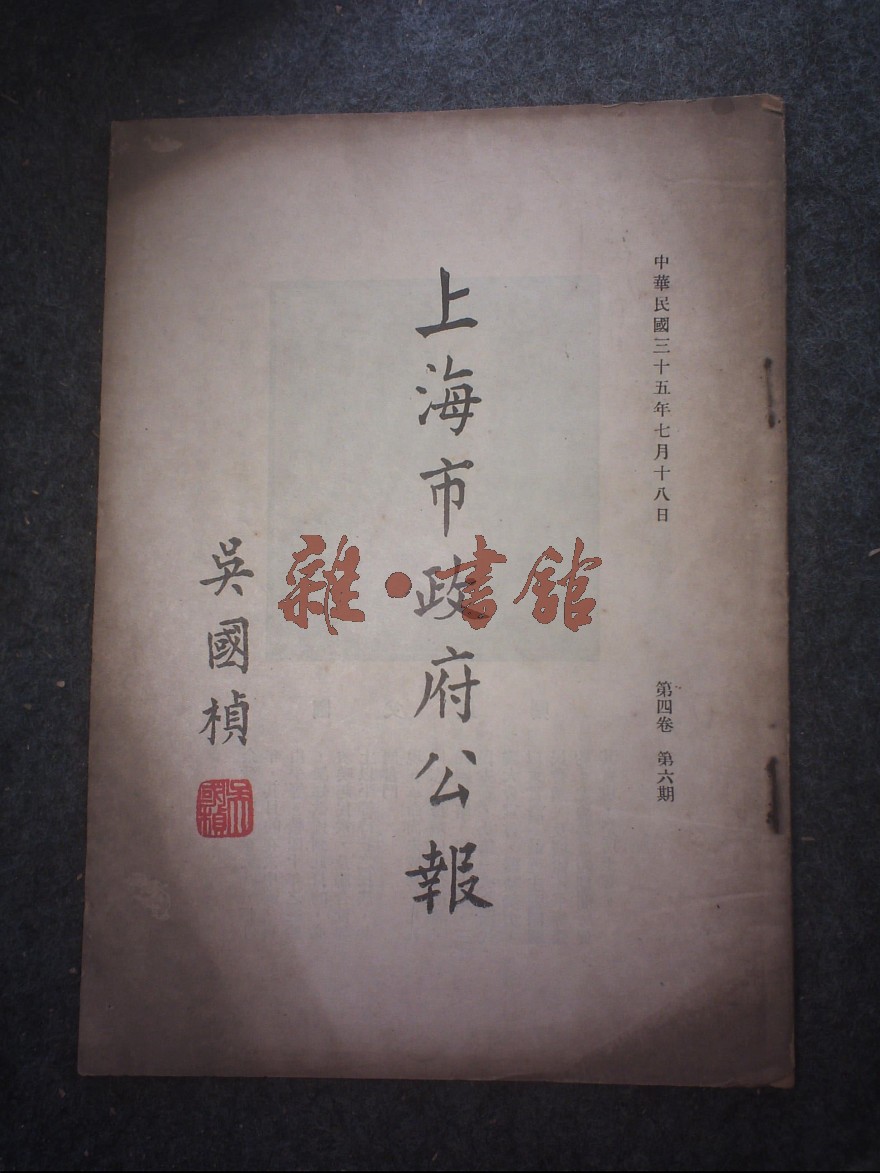 中華民國三十五年七月十八日
第四卷 第六期
上海市政府公報
吳國楨
吳國楨
雜·書館